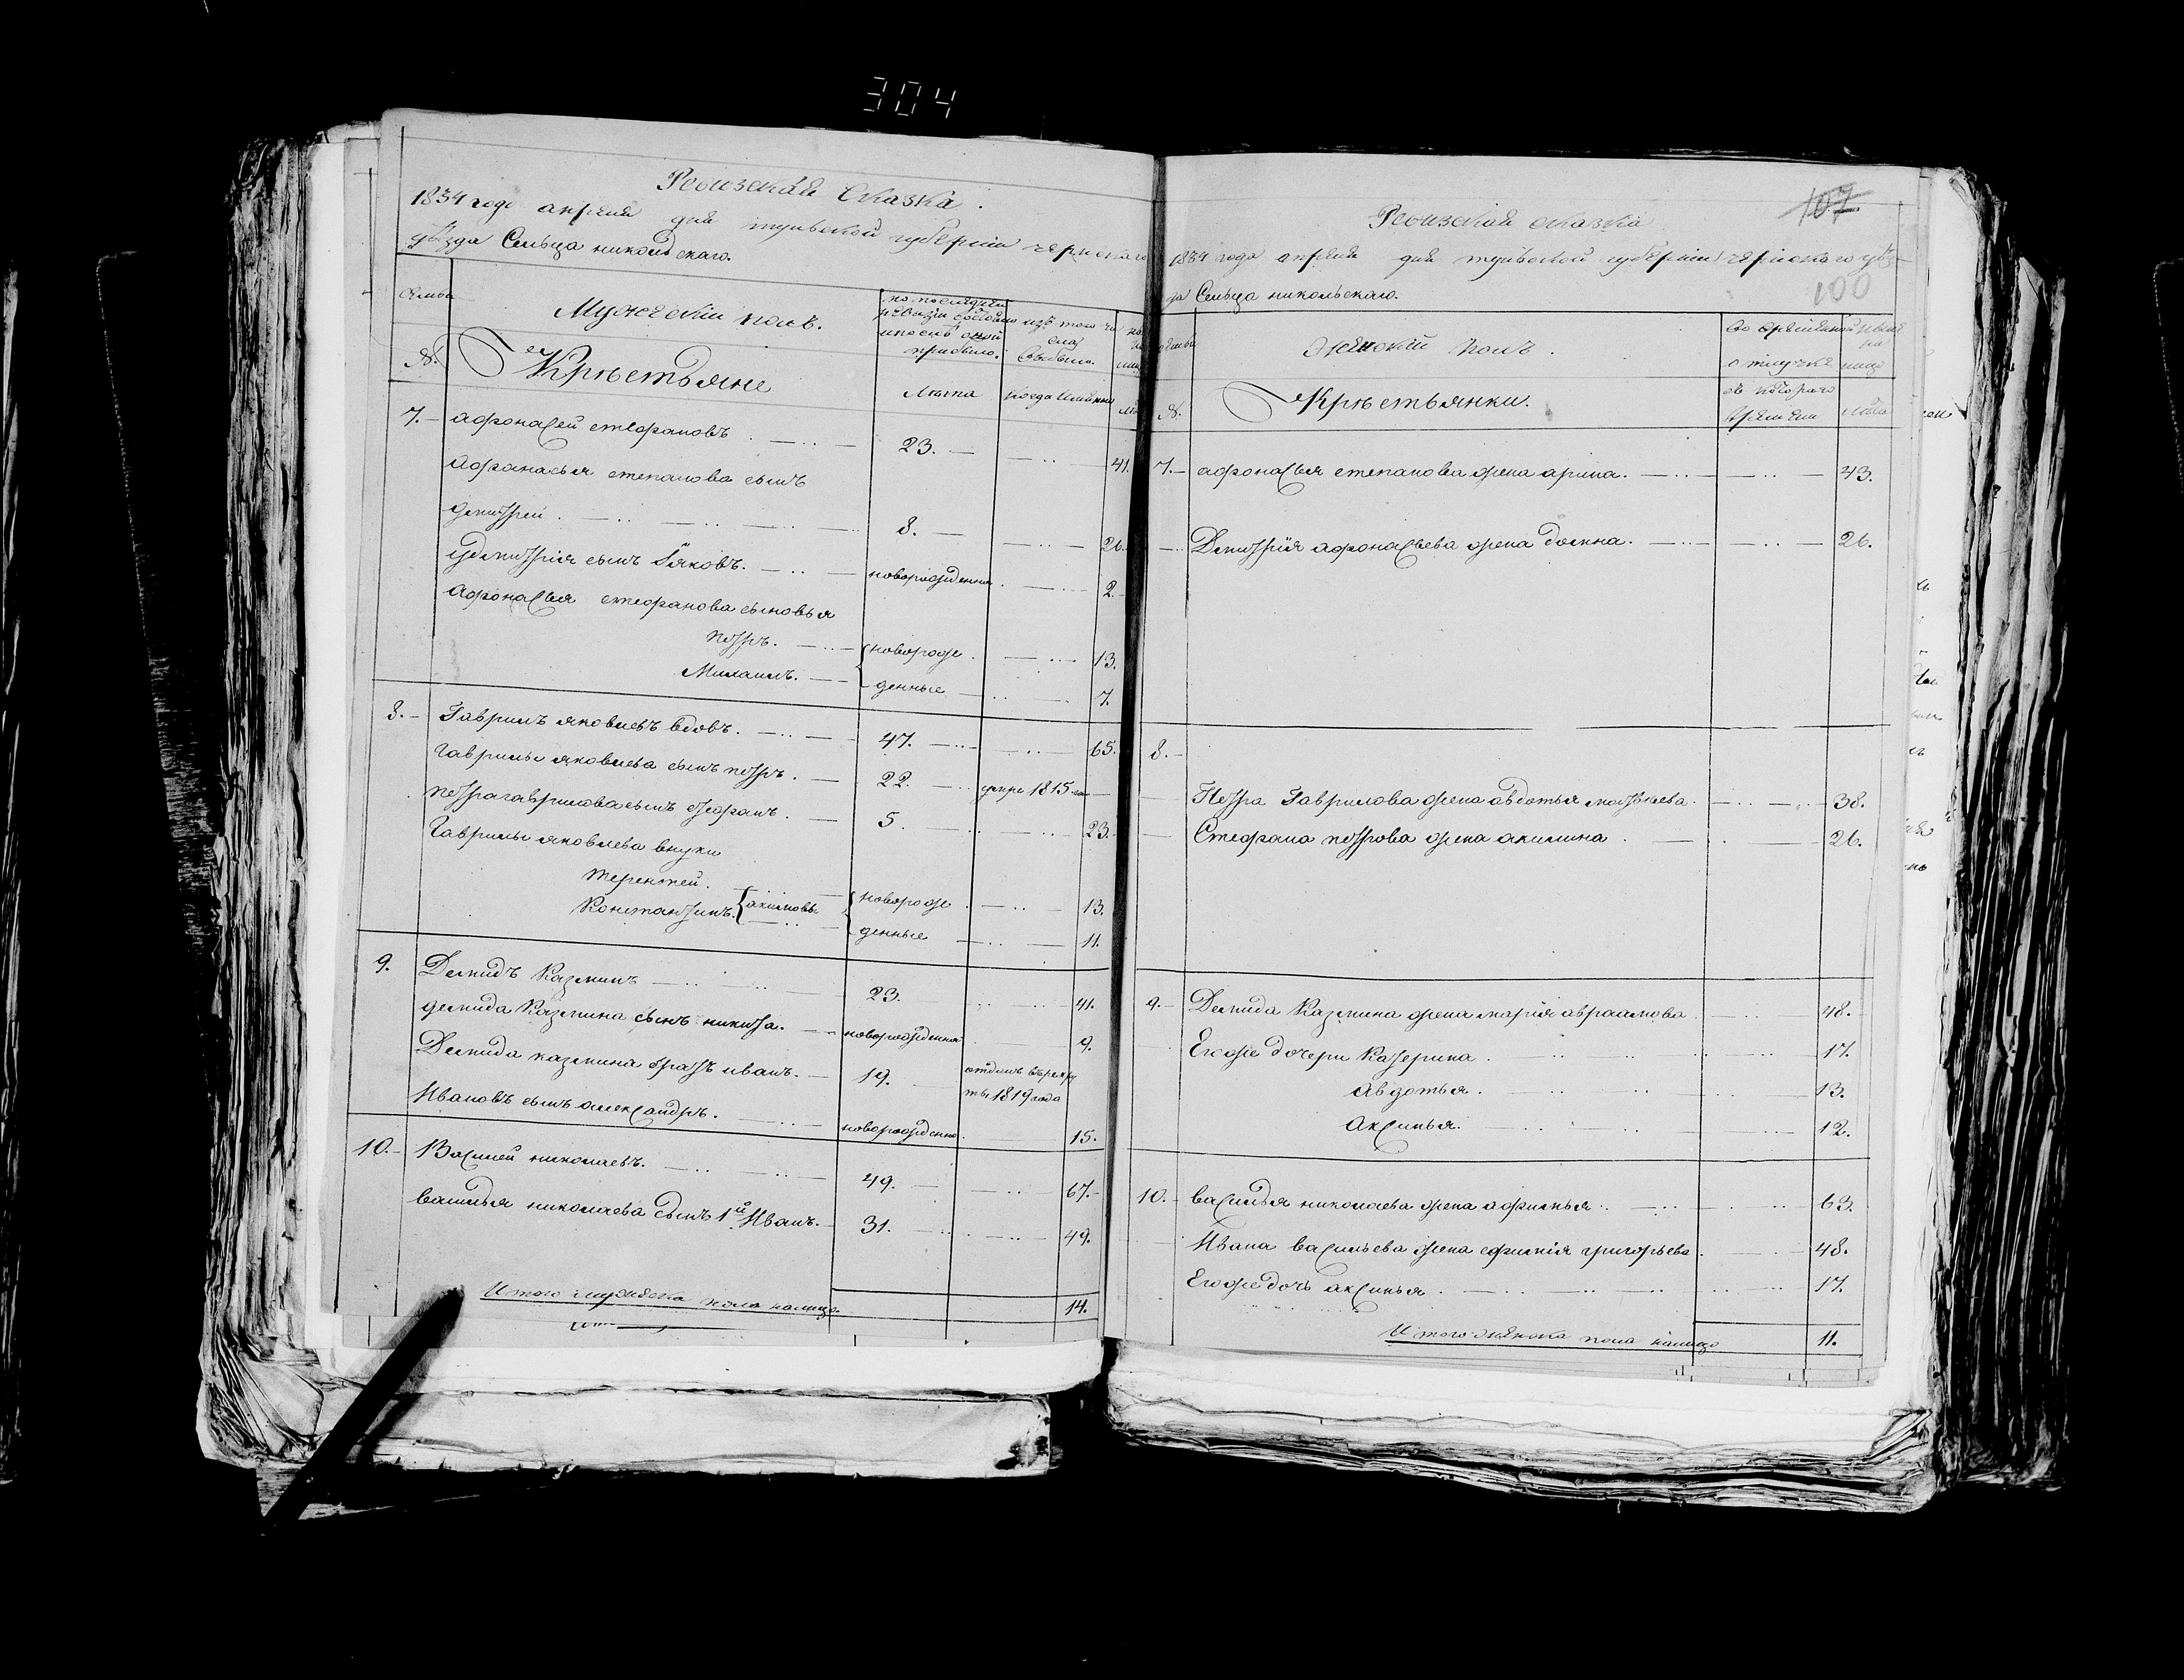 304
Ревизская Сказка.
1834 года апреля дня тульской губернии чернскаго
уѣзда Сельца никольскаго.
Семьи
Мужескiй полъ.
по последней ревизiи состояло и после оной прибыло.
изъ того числа выбыло.
№.
Крѣстьяне
Лѣта
когда именно
7. Афонасей стефановъ. 23. 41.
Афанасья степанова сынъ
дмитрей. 8. 26.
удмитрiя сынъ Яковъ. новорожденной. 2.
Афонасья стефанова сыновья
петръ. новорож 13.
Михаилъ. денные 7.
8. Гаврилъ яковлевъ вдовъ. 47. 65.
Гаврилы яковлева сынъ петръ. 22. умре 1815 го
петра гаврилова сынъ стефанъ. 5. 23.
Гаврилы яковлева внуки
терентей. новорож 13.
Константинъ. акимовы денные 11.
9. Демидъ Казминъ 23. 41.
демида Казмина сынъ никита. новорожденной 9.
Демида казмина братъ иванъ. 19. отданъ въ рекру
ты 1819 года
Ивановъ сынъ александръ. новорожденно. 15.
10. Василей николаевъ. 49. 67.
василья николаева сынъ 1й Иванъ. 31. 49.
Итого мужеска пола налицо. 14.
107
Ревизская сказка
1834 года апреля дня тульской губернiи чернскаго уѣз-
да Сельца никольскаго.
100
семьи
женскiй полъ.
во временной отлучке
ныне на лицо
№.
Крѣстьянки.
съ котораго времени
лѣта
7. афонасья степанова жена арина. 43.
Дмитрiя афонасьева жена домна. 26.
8.
Петра Гаврилова жена авдотья матвѣева. 38.
Стефана петрова жена акилина. 26.
9. Демида Казмина жена марiя авраамова. 48.
Егоже дочери Катерина. 17.
Авдотья. 13.
Аксинья. 12.
10. василья николаева жена афимья. 63.
Ивана васильева жена ефимiя григорьева. 48.
Егоже дочь аксинья. 17.
Итого женска пола налицо 11.